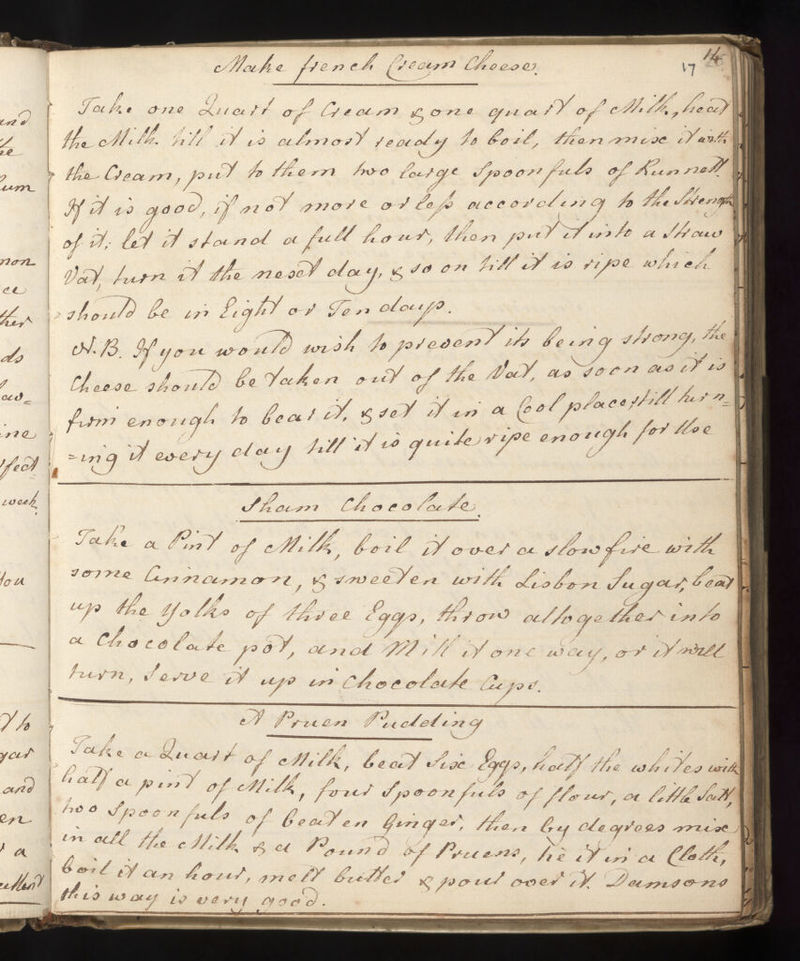 Make french Cream Cheese.
17
14
Take one Quart of Cream & one quart of Milk, heat
the Milk till it is almost ready to boil, then mix it with
the Cream, put to them two large Spoonfuls of Runnett.
If it is good, if not more or less according to the Strength
of it; let it stand a full hour, then put it into a Straw
Vat, turn it the next day, & so on till it is ripe which
should be in Eight or Ten days.
N.B. If you would wish to prevent its being strong, the
Cheese should be taken out of the Vat, as soon as it is
firm enough to bear it, & set it in a Cool place, still turn=
=ing it every day till it is quite ripe enough for Use
Sham Chocolate.
Take a Pint of Milk, boil it over a slow fire with
some Cinnamon, & sweeten with Lisbon Sugar, beat
up the Yolks of three Eggs, throw altogether into
a Chocolate pot, and Mill it one way, or it will
turn, Serve it up in Chocolate Cups.
A Pruen Pudding
Take a Quart of Milk, beat Six Eggs, half the whites with
half a pint of Milk, four Spoonfuls of flour, a little Salt,
two Spoonfuls of beaten Ginger, then by degrees mix
in all the Milk & a Pound of Pruens, tie it in a Cloth,
boil it an hour, melt butter & pour over it. Damsons
this way is very good.